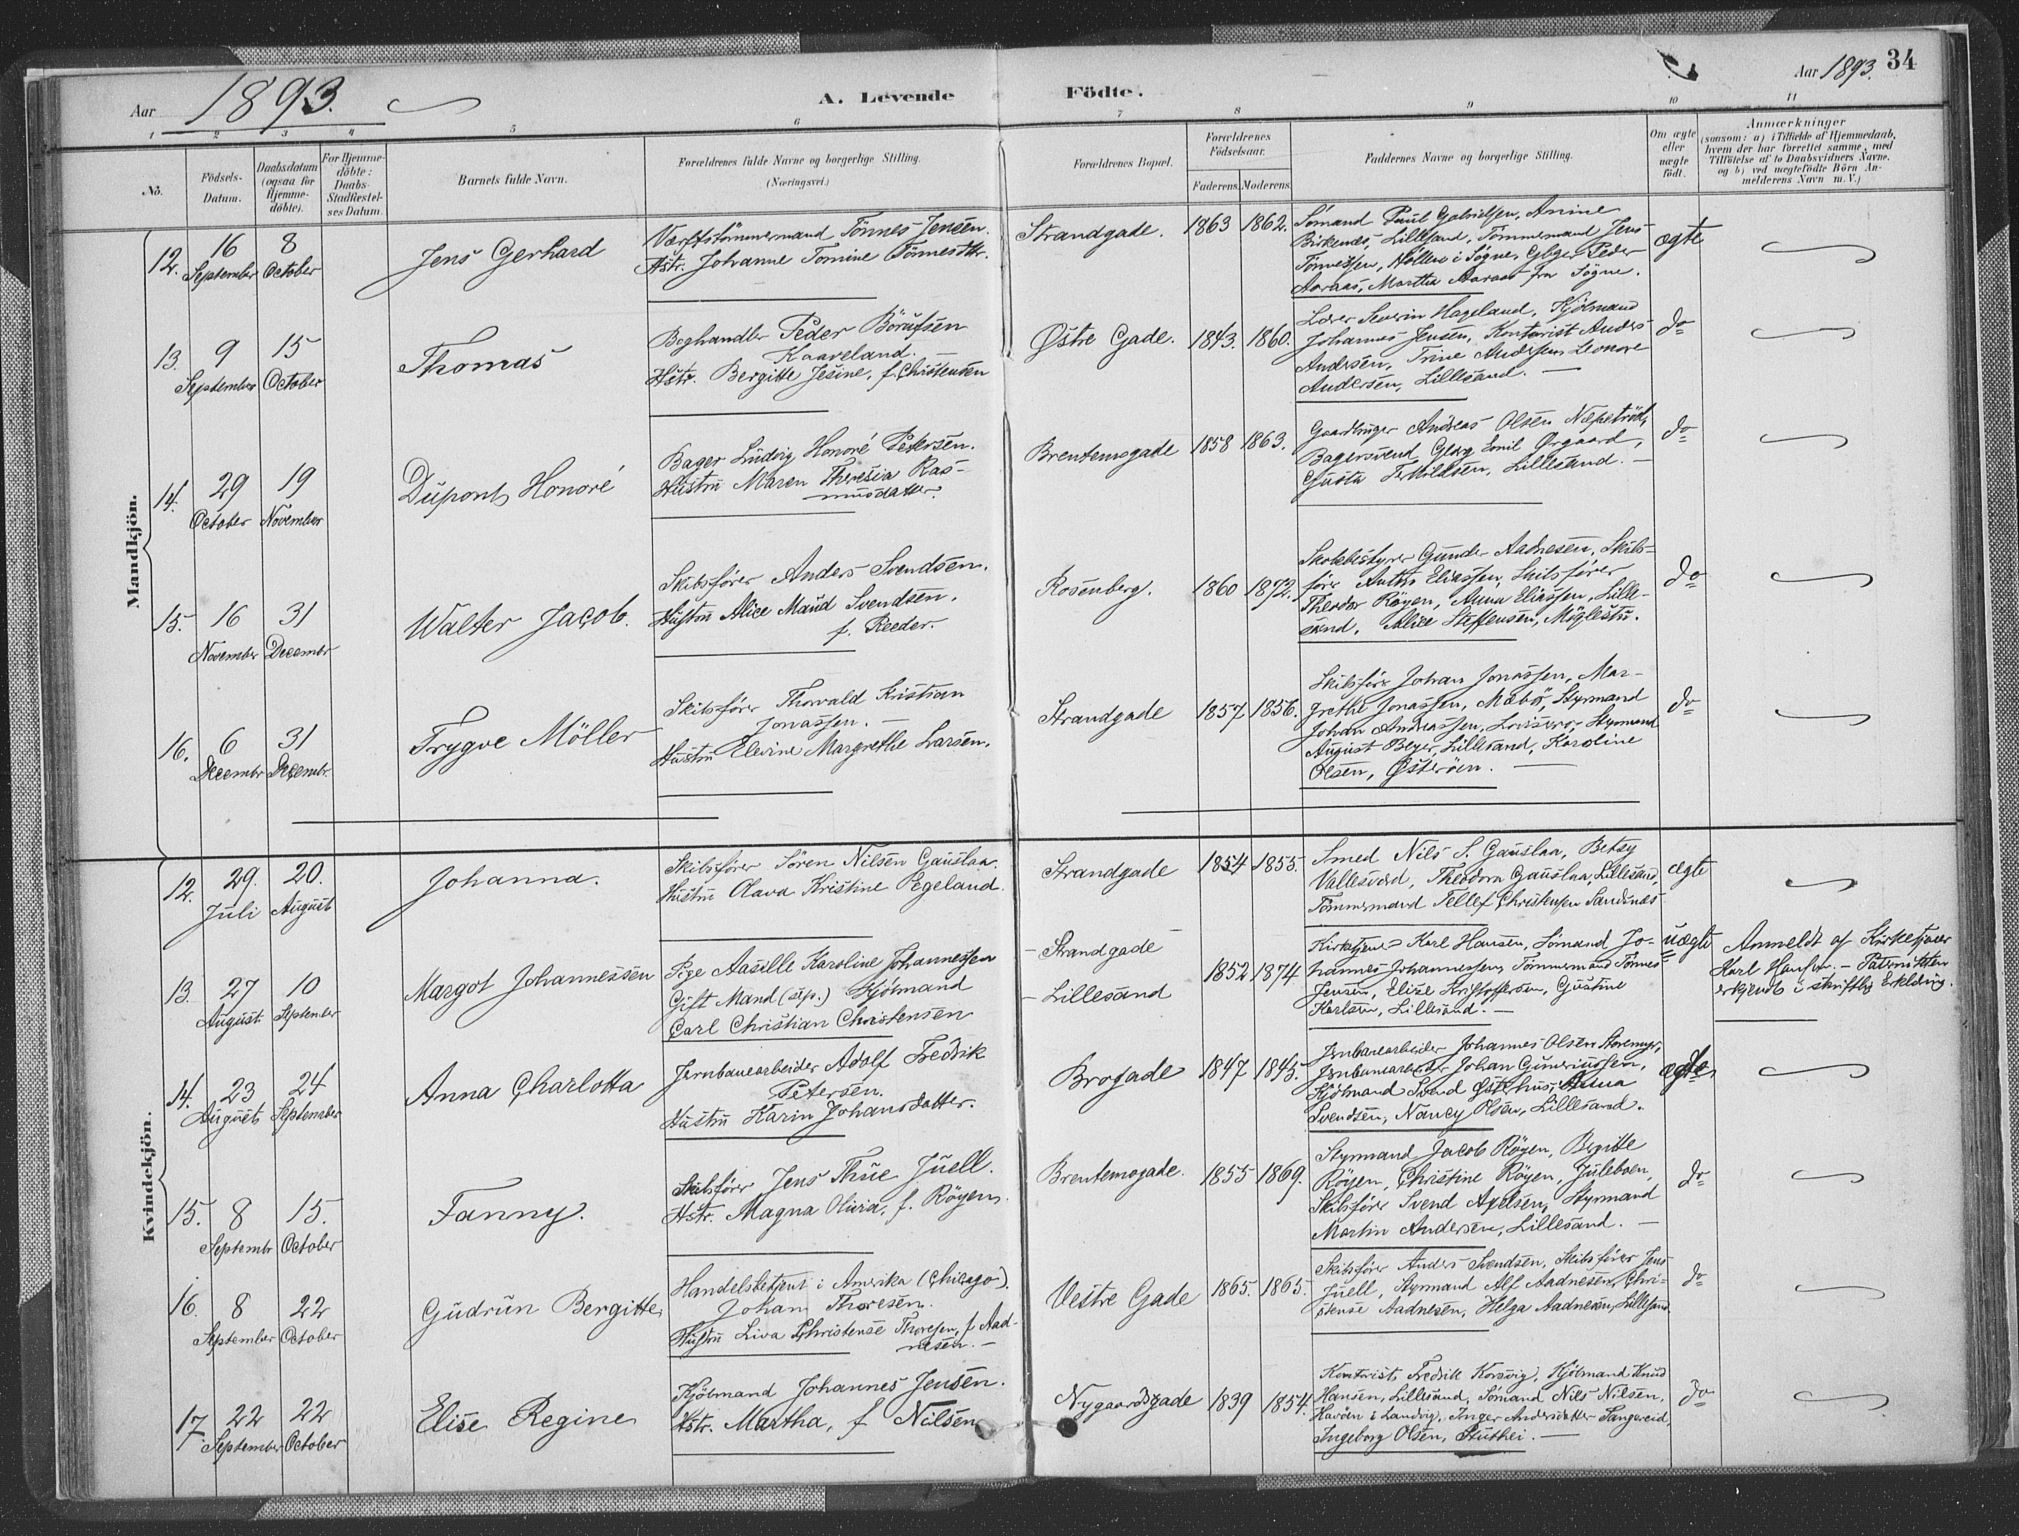 Aar 1893.
A. Levende Födte.
Aar 1893. 34
1 2 3 4 5 6 7 8 9 10 11
No.
Födsels-Datum.
Daabsdatum (ogsaa for Hjemme-döbte).
For Hjemme-döbte: Daabs-Stadfæstel-ses Datum.
Barnets fulde Navn.
Forældrenes fulde Navne og borgerlige Stilling.
(Næringsvei.)
Forældrenes Bopæl.
Forældrenes Födselsaar.
Faderens. Moderens.
Faddernes Navne og borgerlige Stilling.
Om ægte eller uægte födt.
Anmærkninger
(saasom: a) i Tilfælde af Hjemmedaab,
hvem der har forrettet samme, med
Tilföielse af to Daabsvidners Navne,
og b) ved uægtefödte Börn An-
melderens Navn m. V.)
Mandkjön.
12. 16 September 8 October
Jens Gerhard
Værftstömmermand Tönnes Jensen.
Hstr. Johanne Tomine Tönnesdtr.
Strandgade. 1863 1862.
Sömand Paul Gabrielsen, Anine
Birkenæs, Lillesand, Tömmermand Jens
Tönnessen, Høllen i Søgne, Peder
Aaraas, Martha Aaraas fra Søgne.
ægte
13. 9 September 15 October
Thomas
Boghandler Peder Börufsen
Kaaveland.
Hstr. Bergitte Jesine, f. Christensen
Østre Gade. 1843. 1860.
Lærer Severin Hageland, Kjöbmand
Johannes Jensen, Kontorist Anders
Andersen, Trine Andersen, Leonore
Andersen, Lillesand. —
do
14. 29 October 19 November
Düpont Honoré
Bager Lüdvig Honoré Petersen.
Hüstrü Maren Theresia Ras-
müsdatter.
Brentemogade 1858 1863.
Gaardbruger Andreas Olsen
Bagersvend Georg Emil Ørgaard,
Gusta Terkildsen, Lillesand. —
do
15. 16 November 31 Decembr
Walter Jacob.
Skibsfører Anders Svendsen.
Hüstrü Alice Maud Svendsen,
f. Reeder.
Rosenberg. 1860 1872.
Skolebestyrer Gunder Aadnesen, Skibs-
förer Eliassen, Skibsförer
Theodor Röyen, Anna Eliassen, Lille-
sand, Alice Steffensen, Möglestü.
do
16. 6 Decembr 31 Decembr.
Trygve Möller
Skibsfører Thorvald Kristian
Jonassen. —
Hüstrü Elevine Margrethe Larsen.
Strandgade 1857 1856.
Skibsförer Johan Jonassen, Mar-
grethe Jonassen, Styrmand
Johan Andreassen, Styrmand
August Beyer, Lillesand, Karoline
Olsen, Østeröen. —
do
Kvindekjön.
12. 29. Juli 20. August
Johanna.
Skibsfører Sören Nilsen Gauslaa.
Hüstrü Olava Kristine Pegeland.
Strandgade 1854 1855.
Smed Nils S. Gauslaa, Betsy
Vallesværd, Theodora Gauslaa, Lillesand,
Tömmermand Tellef Christensen Sandnæs
ægte
13. 27 August. 10 September
Margot Johannessen
Pige Aasille Karoline Johannessen
Gift Mand (sep.) Kjöbmand
Carl Christian Christensen
- Strandgade -
- Lillesand 1852 1874
Kirketjener Karl Hansen, Sömand Jo-
hannes Johannessen, Tömmermand Tönnes
Jensen, Elise Kristoffersen, Güstine
Karlsen, Lillesand. —
uægte
Anmeldt af Kirketjener
Karl Hansen. — Paterniteten
erkjendt i skriftlig Erklæring.
14. 23 August 24 September
Anna Charlotta
Jernbanearbeider Adolf Fredrik
Petersen.
Hüstrü Karin Johansdatter.
Brogade 1847 1845.
Jernbanearbeider Johannes Olsen Storemyr,
Jernbanearbeider Johan Gunerüussen,
Kjöbmand Svend Østerhus, Anna
Svendsen, Nancy Olsen, Lillesand.
ægte
15. 8 Septembr 15. October
Fanny.
Skibsfører Jens Thue Juell.
Hstr. Magna Olivia, f. Röyen.
Brentemogade. 1855 1869.
Styrmand Jacob Röyen, Bergitte
Röyen, Christine Röyen, Juleboen,
Skibsförer Svend Axelsen, Styrmand
Martin Andersen, Lillesand. —
do
16. 8 September 22 October
Gudrun Bergitte
Handelsbetjent i Amerika (Chicago).
Johan Thoresen.
Hüstrü Liva Christense Thoresen, f. Aad-
nesen. —
Vestre Gade 1865. 1865.
Skibsförer Anders Svendsen, Skibsförer Jens
Juell, Styrmand Alf Aadnesen, Chri-
stense Aadnesen, Helga Aadnesen, Lillesand
do
17. 22 September 22 October
Elise Regine
Kjöbmand Johannes Jensen.
Hstr. Martha, f. Nilsen
Nygaardsgade 1839 1854.
Kontorist Fredrik Korsvig, Kjöbmand Knud
Hansen, Lillesand, Sömand Nils Nilsen,
Havöen i Landvig, Inger Andersdatter Tangereid,
Ingeborg Olsen, Stuthei. —
do